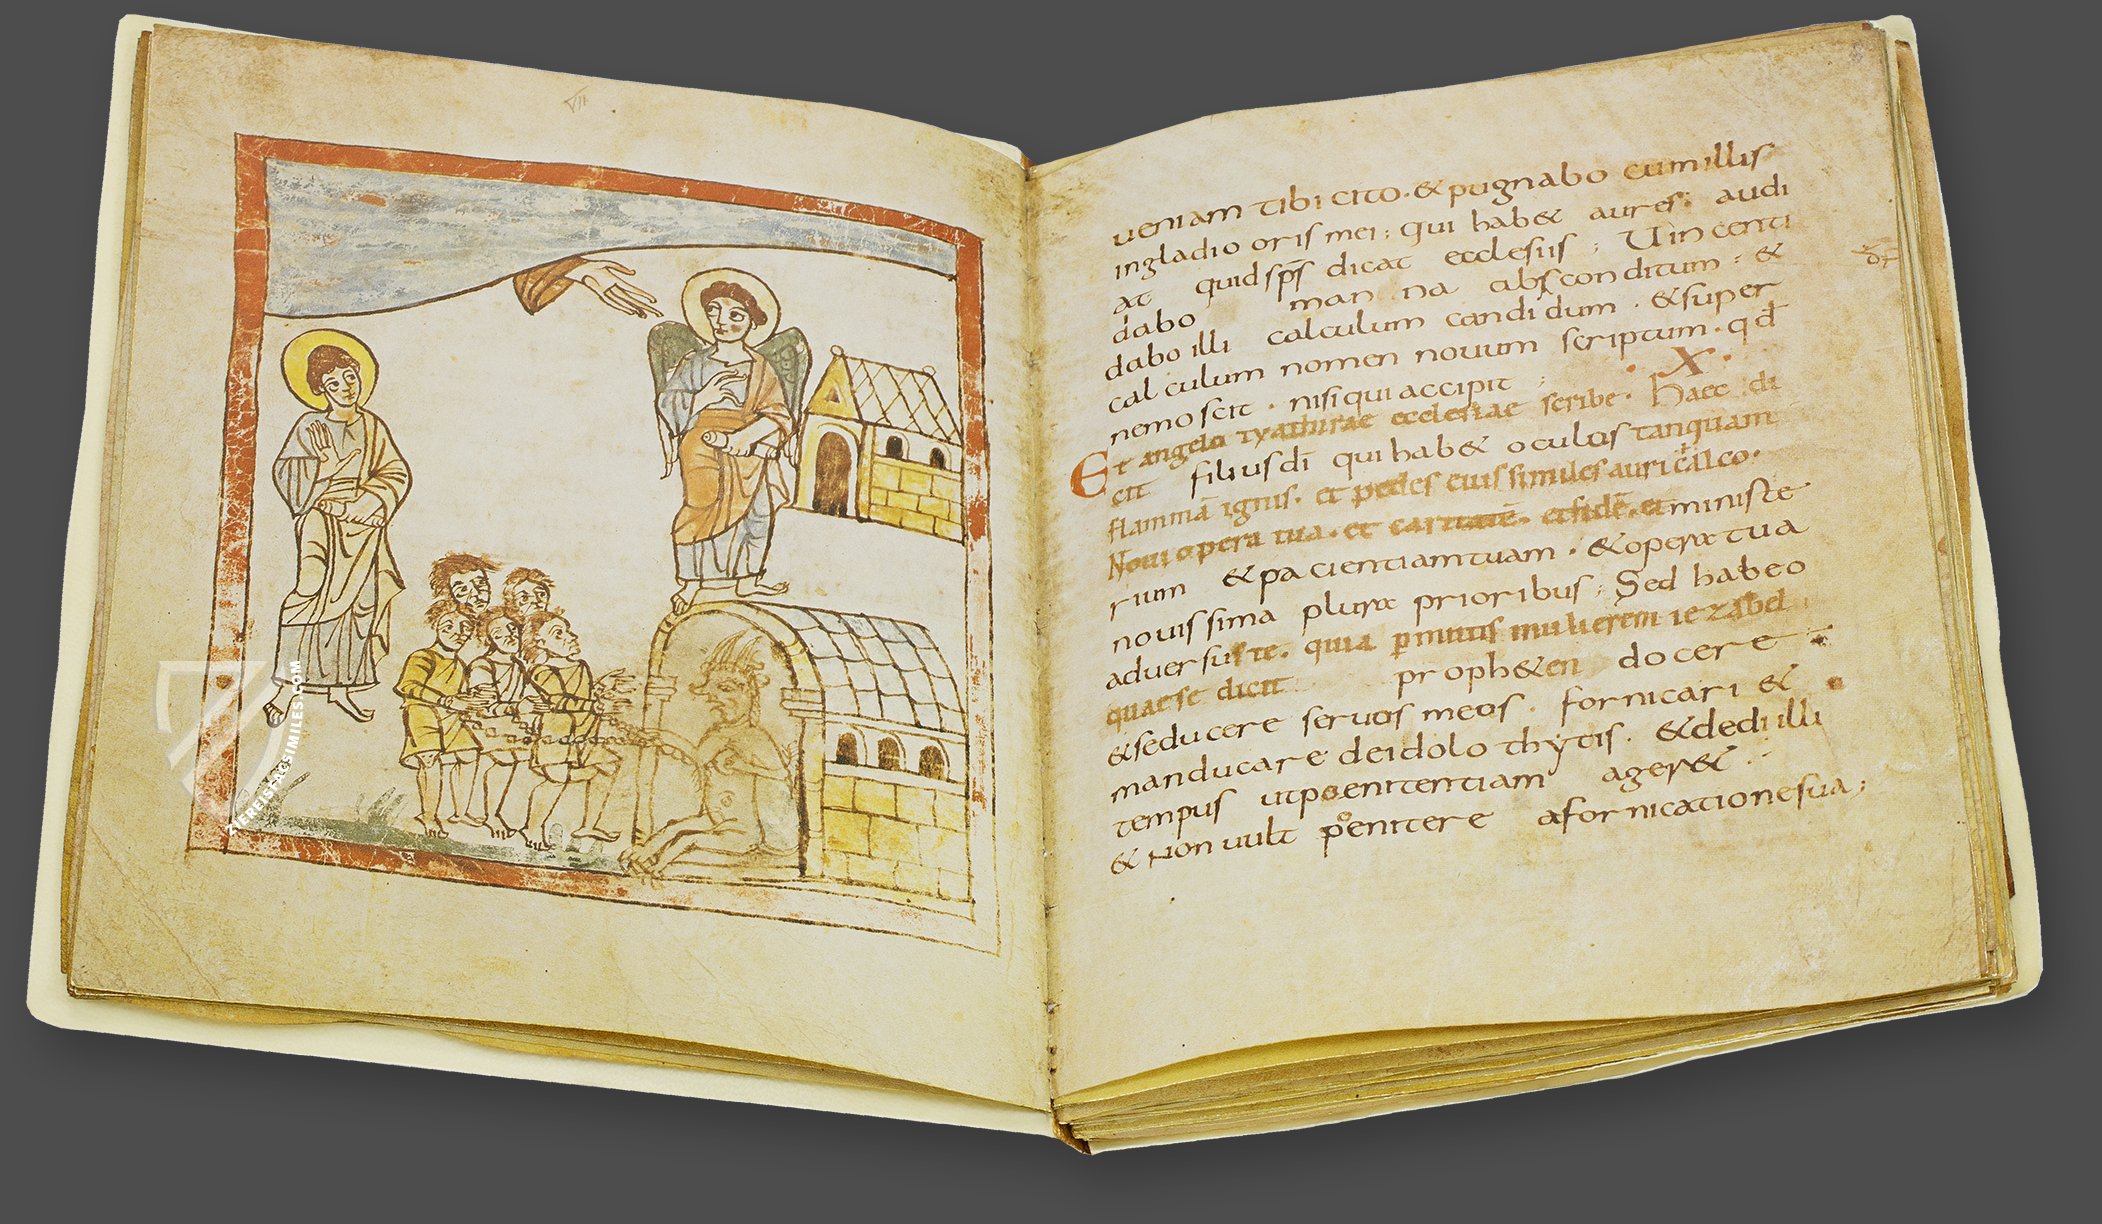 VII
ZIEREISFACSIMILES.COM
ueniam tibi cito · & pugnabo cum illis
ingladio oris mei ; qui hab& aures ; audi
at quid sp̄s dicat ecclesiis ; Uincenti
dabo man na absconditum ; &
dabo illi calculum candidum · & super
calculum nomen nouum scriptum · qd̄
nemo scit · nisi qui accipit ; · X ·
Et angelo tyathirae ecclesiae scribe · Haec di
cit filius dī qui hab& oculos tanquam
flammā ignis · et pedes eius similes auricalco ·
Noui opera tua · et caritatē · et fidē · et ministe
rium & pacientiam tuam · & opera tua
nouissima plura prioribus ; Sed habeo
aduersus te · quia p̄mittis mulierem iezabel
quae se dicit proph&en docere
& seducere seruos meos · fornicari &
manducare de idolothytis · & dedi illi
tempus ut poenitentiam ager& ·
& Non uult poenitere a fornicatione sua ;